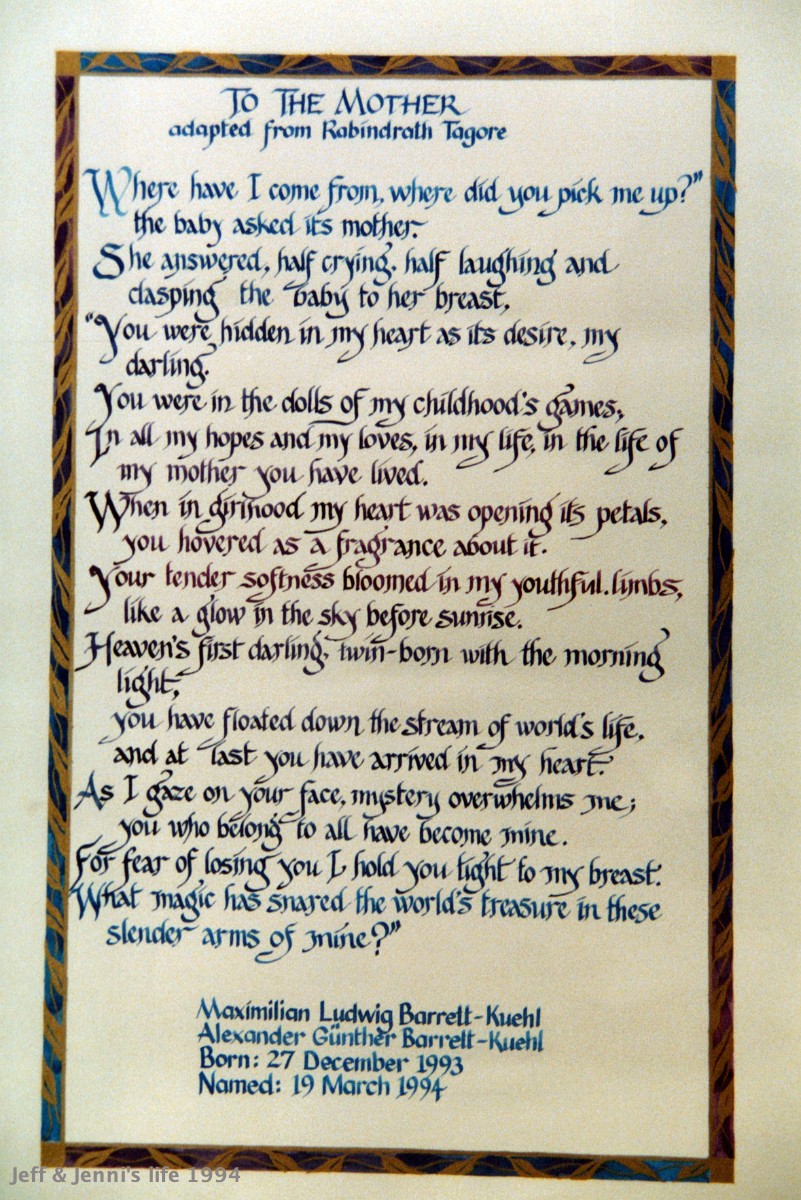 TO THE MOTHER
adapted from Rabindrath Tagore
Where have I come from, where did you pick me up?"
the baby asked its mother.
She answered, half crying, half laughing and
clasping the baby to her breast,
"You were hidden in my heart as its desire, my
darling.
You were in the dolls of my childhood's games,
In all my hopes and my loves, in my life, in the life of
my mother you have lived.
When in girlhood my heart was opening its petals,
you hovered as a fragrance about it.
Your tender softness bloomed in my youthful limbs,
like a glow in the sky before sunrise.
Heaven's first darling, twin-born with the morning
light,
you have floated down the stream of world's life,
and at last you have arrived in my heart.
As I gaze on your face, mystery overwhelms me;
you who belong to all have become mine.
For fear of losing you I hold you tight to my breast.
What magic has snared the world's treasure in these
slender arms of mine?"
Maximilian Ludwig Barrett-Kuehl
Alexander Günther Barrett-Kuehl
Born: 27 December 1993
Named: 19 March 1994
Jeff & Jenni's life 1994